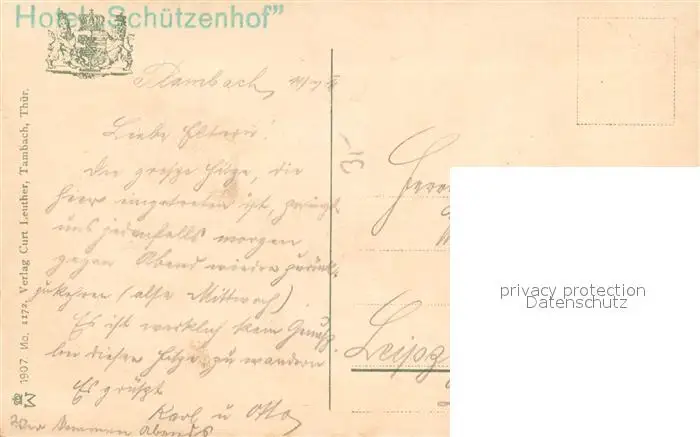 Hotel „Schützenhof”
Tambach,
Liebe Eltern!
Die große Hitze, die
hier eingetreten ist, zwingt
uns jedenfalls morgen
gegen Abend wieder zurück-
zukehren (also Mittwoch)
Es ist wirklich kein Genuß
bei dieser Hitze zu wandern
Es grüßt
Karl u Otto
Abends
1907. No. 1172, Verlag Curt Leuther, Tambach, Thür.
31
Herrn
Leipzig
privacy protection
Datenschutz